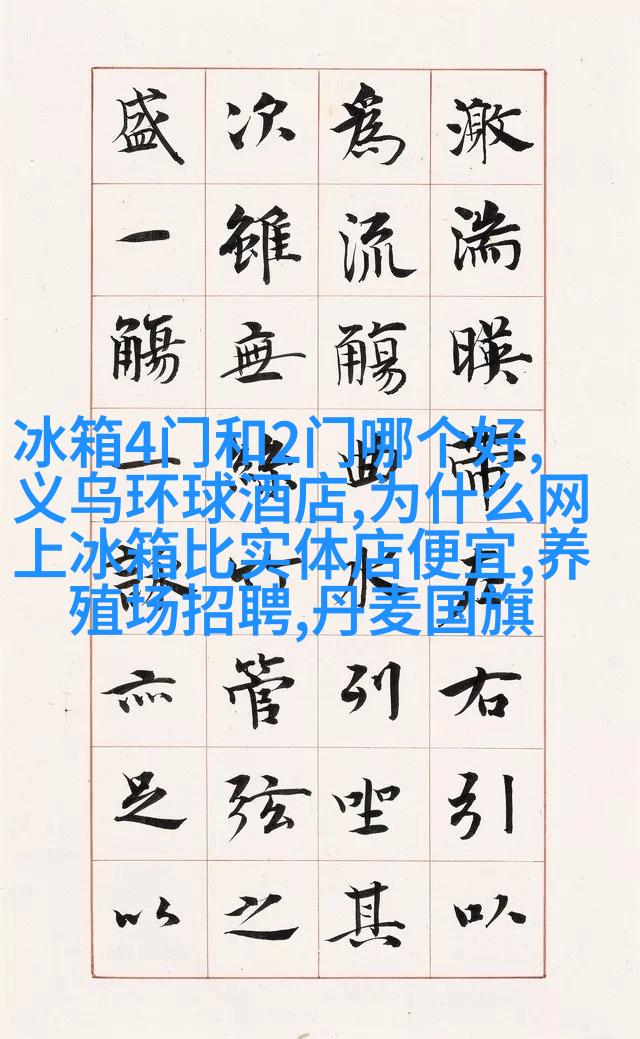 激湍暎帶左右引以
為流觴曲水列坐其
次雖無絲竹管弦之
盛一觴一詠亦足以
冰箱4门和2门哪个好,
义乌环球酒店,为什么网
上冰箱比实体店便宜,养
殖场招聘,丹麦国旗